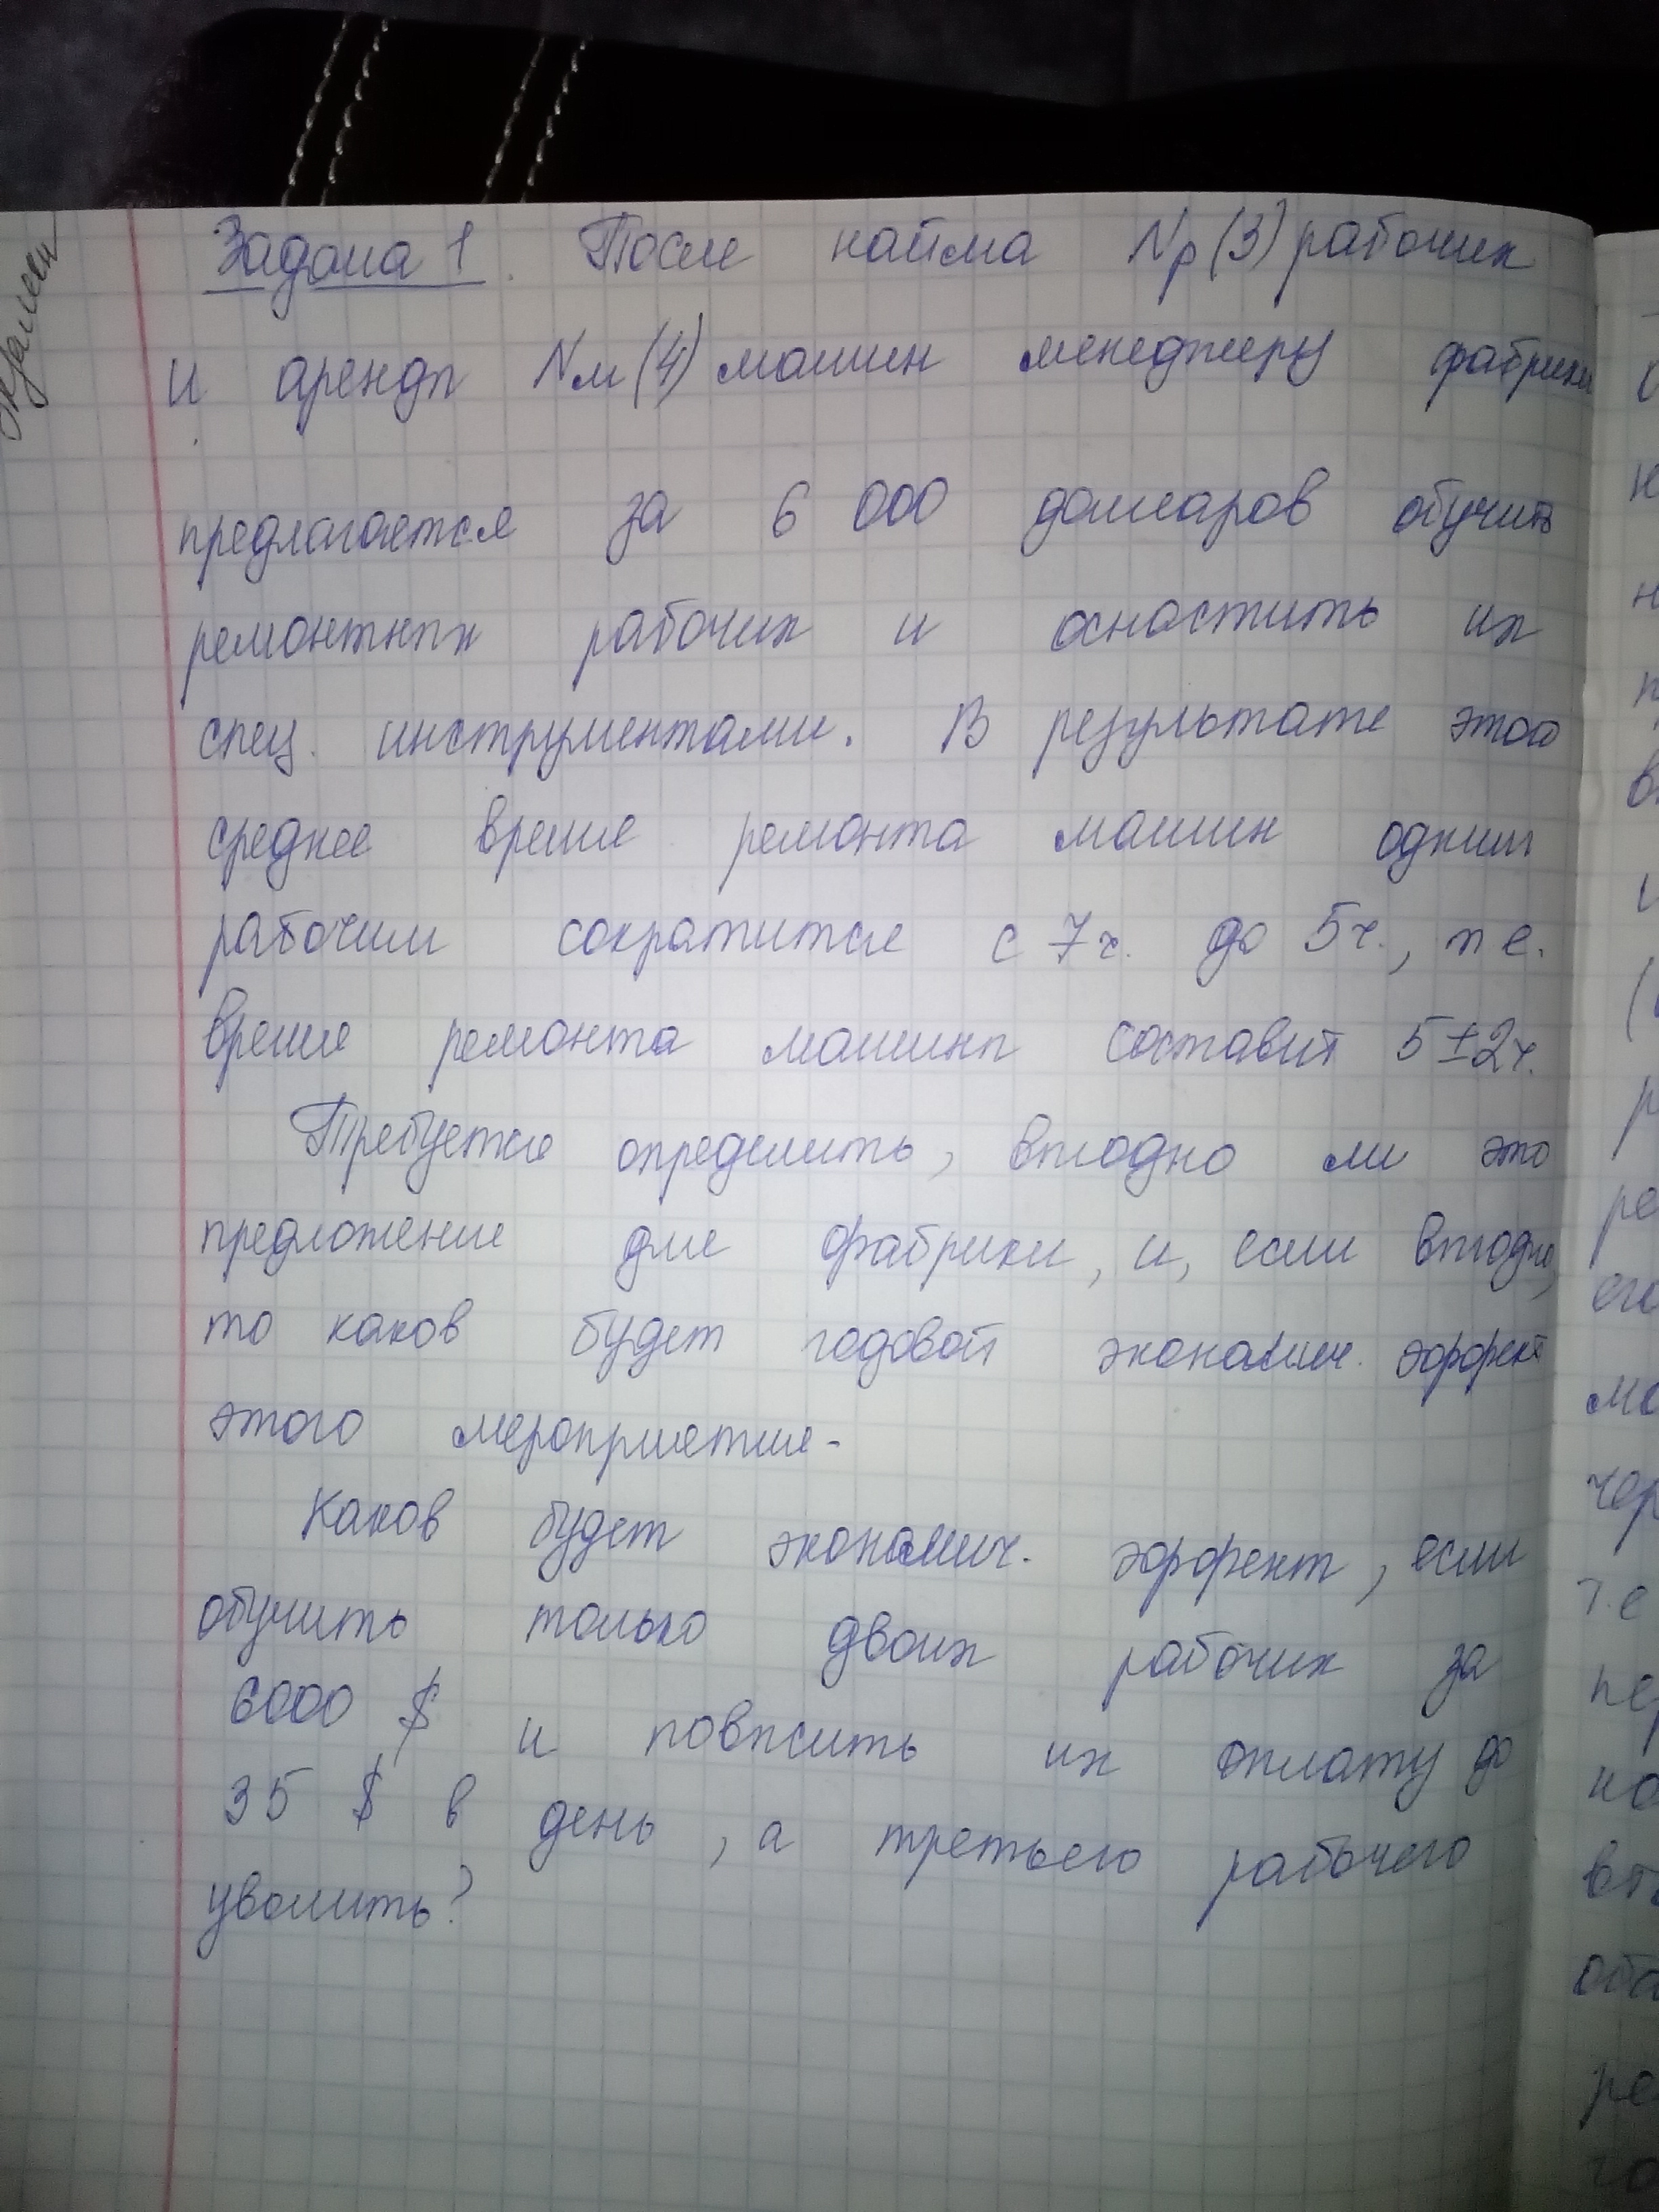 Задача 1. После найма Nр(3) рабочих
и аренды Nм(4) машин менеджеру фабрики
предлагается за 6 000 долларов обучить
ремонтных рабочих и оснастить их
спец. инструментами. В результате этого
среднее время ремонта машин одним
рабочим сократится с 7 ч. до 5 ч., т е.
время ремонта машины составит 5 ± 2 ч.
Требуется определить, выгодно ли это
предложение для фабрики, и, если выгодно,
то каков будет годовой экономич. эффект
этого мероприятия.
Каков будет экономич. эффект, если
обучить только двоих рабочих за
6000 $ и повысить их оплату до
35 $ в день, а третьего рабочего
уволить?